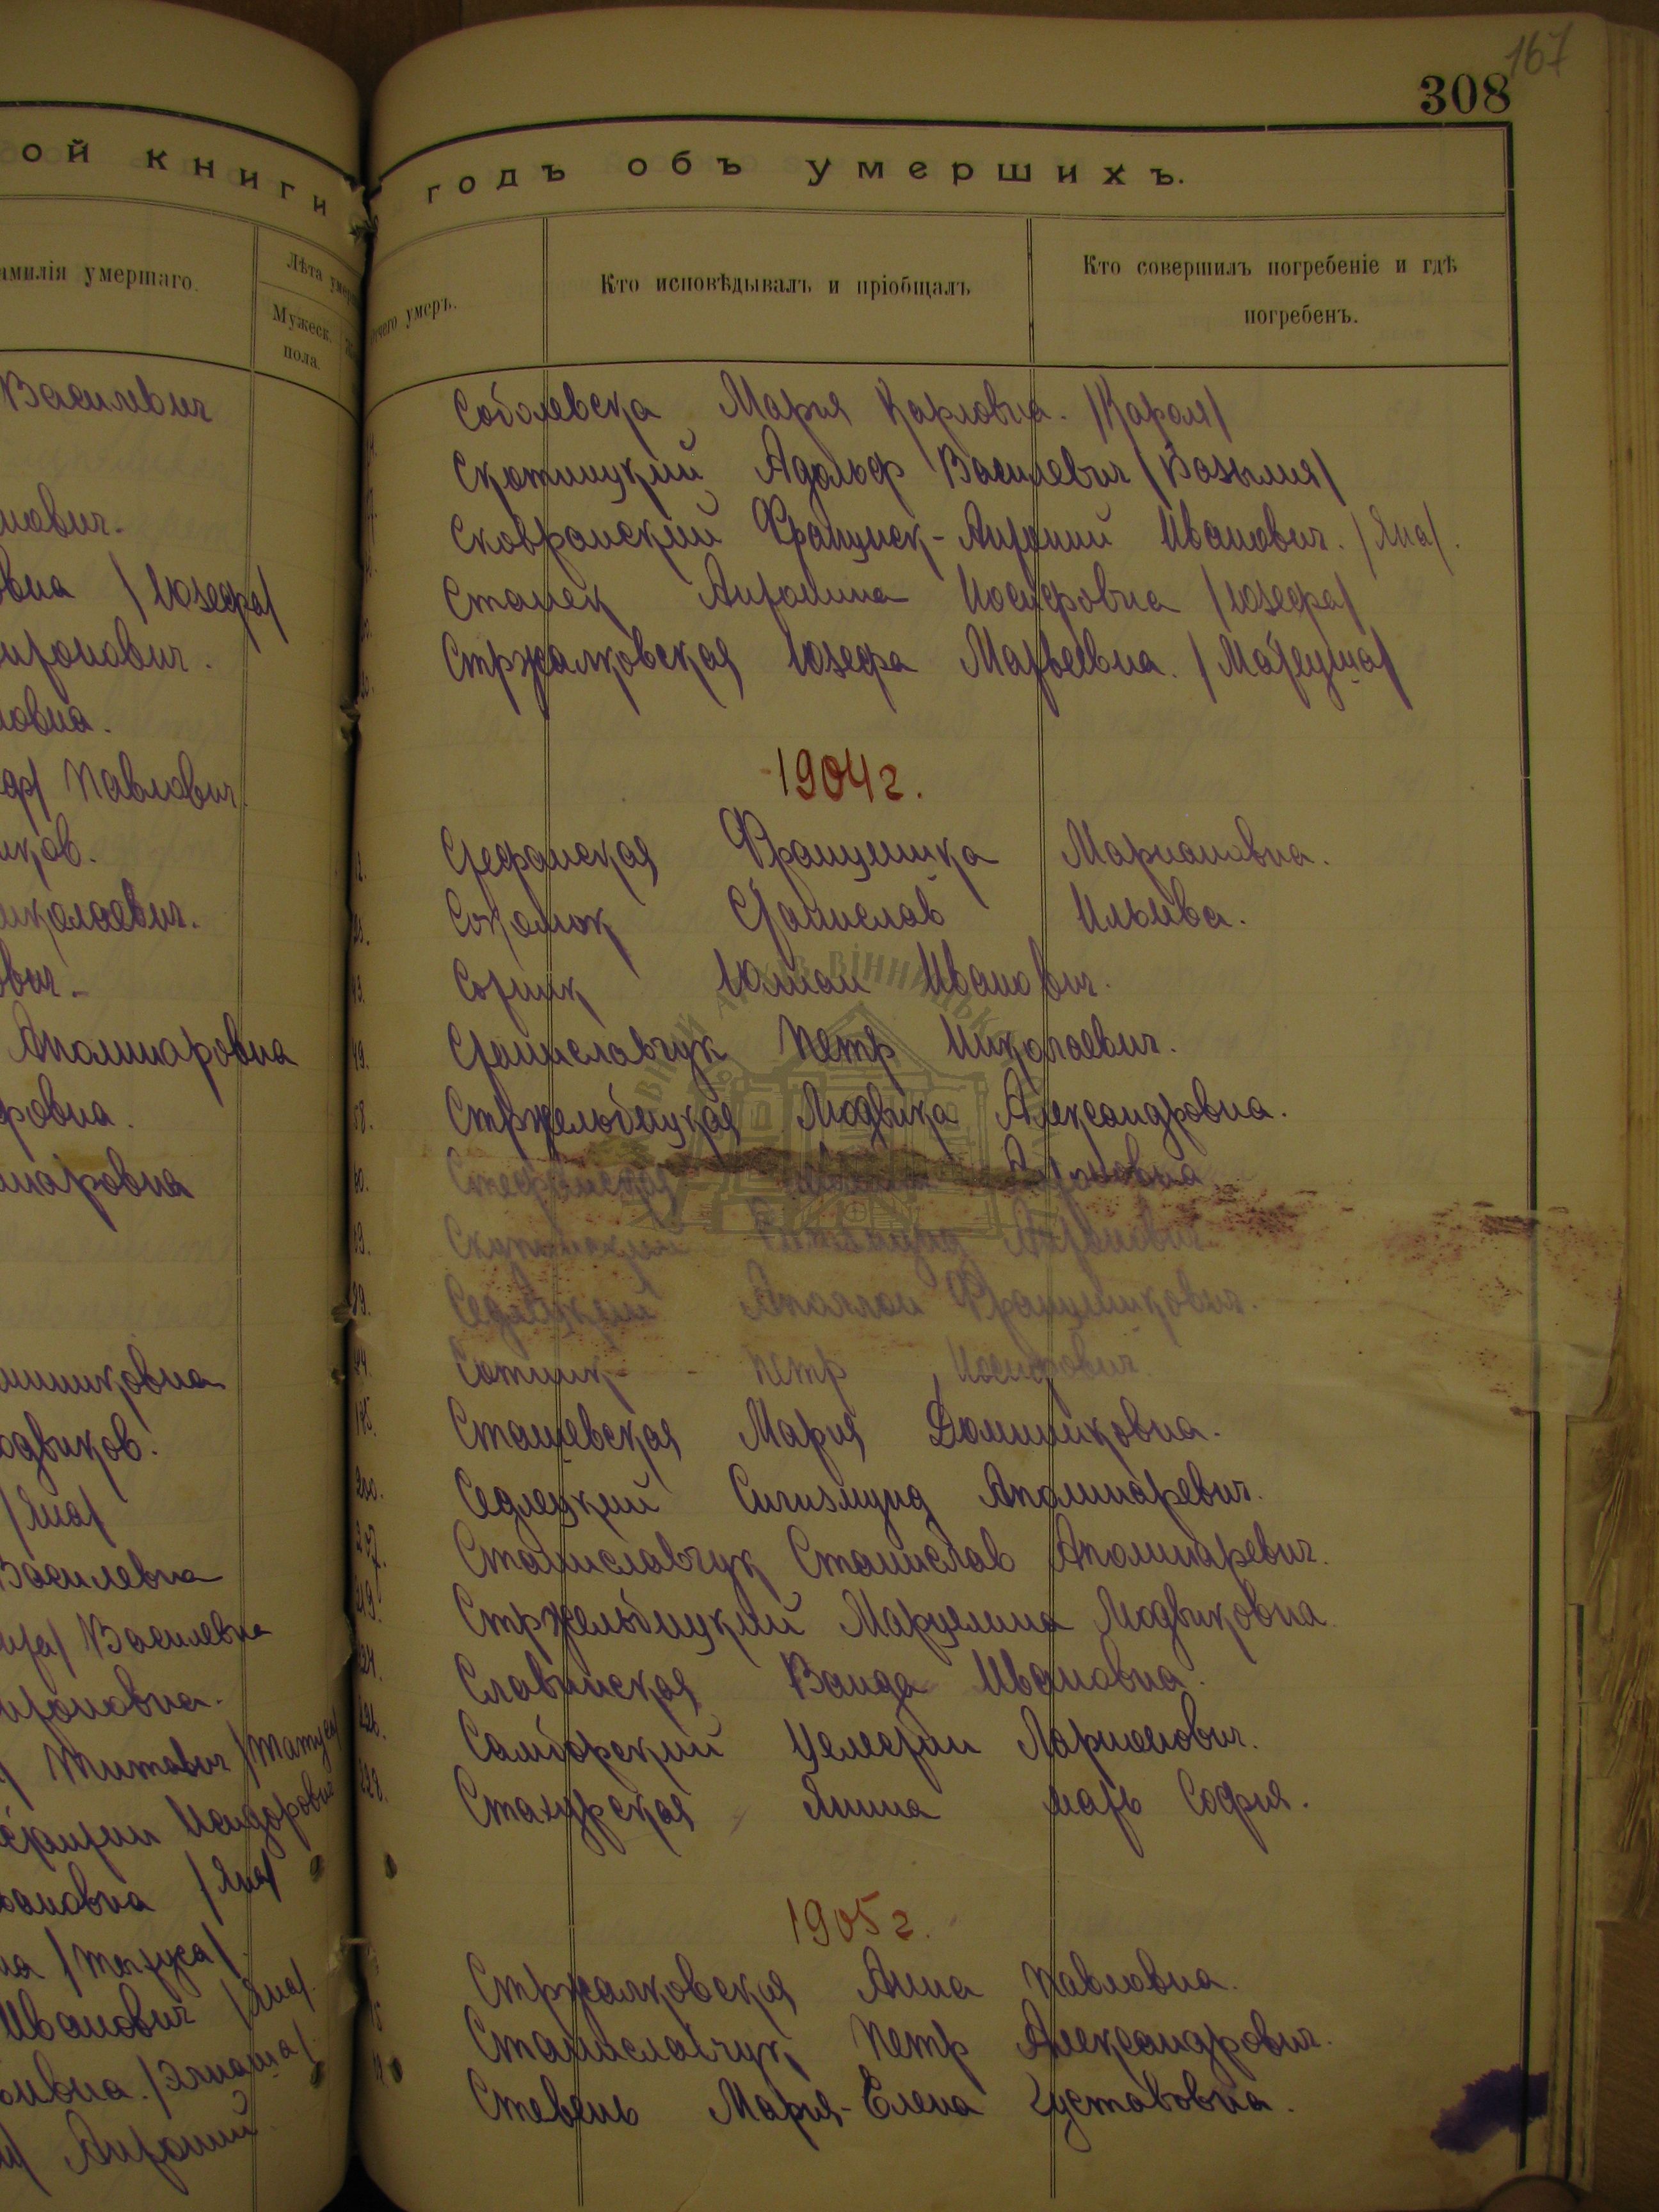 167
308
ой книги
годъ объ умершихъ.
амилія умершаго.
Лѣта
Мужеск. пола.
чего умеръ.
Кто исповѣдывалъ и пріобщалъ
Кто совершилъ погребеніе и гдѣ
погребенъ.
Василевич
нович.
вна /Юзефа/
нтонович.
овна.
Павлович
иков.
иколаевич.
вич.
Аполинаровна
ровна.
наровна
нишковна
юдвиков.
/Яна/
Василевна
Василевна
нтоновна.
Титович /Татуса/
Исидоровна
вановна /Яна/
на
Иванович /Яна/.
Антоний
Соболевска Мария Карловна. /Кароля/
Скотницкий Адольф Василевич /Базылия/
Сковронский Франциск-Антоний Иванович. /Яна/.
Станек Антонина Иосифовна /Юзефа/
Стржалковская Юзефа Матвеевна. /Матеуша/
1904 г.
Стефанская Франциишка Мариановна.
Соколюк Станислав Ильива.
Сотник Юлиан Иванович.
49. Станиславчук Петр Николаевич.
58. Стржельбицкая Людвика Александровна.
Стефанская Антоновна.
Антонович
Седлецкий Аполлон Францишкович.
Сотник Петр Иосифович.
195. Сташевская Мария Доминиковна.
200. Седлецкий Сигизмунд Аполинаревич.
207. Станиславчук Станислав Аполинаревич.
219. Стржельбицкий Марцелина Людвиковна
224. Славинская Ванда Ивановна.
226. Самборский Целестин Ларионович.
228. Стахурская Янина мать София.
1905 г.
Стржалковская Анна Павловна.
Станиславчук Петр Александрович.
Стевень Мария-Елена Густавовна.